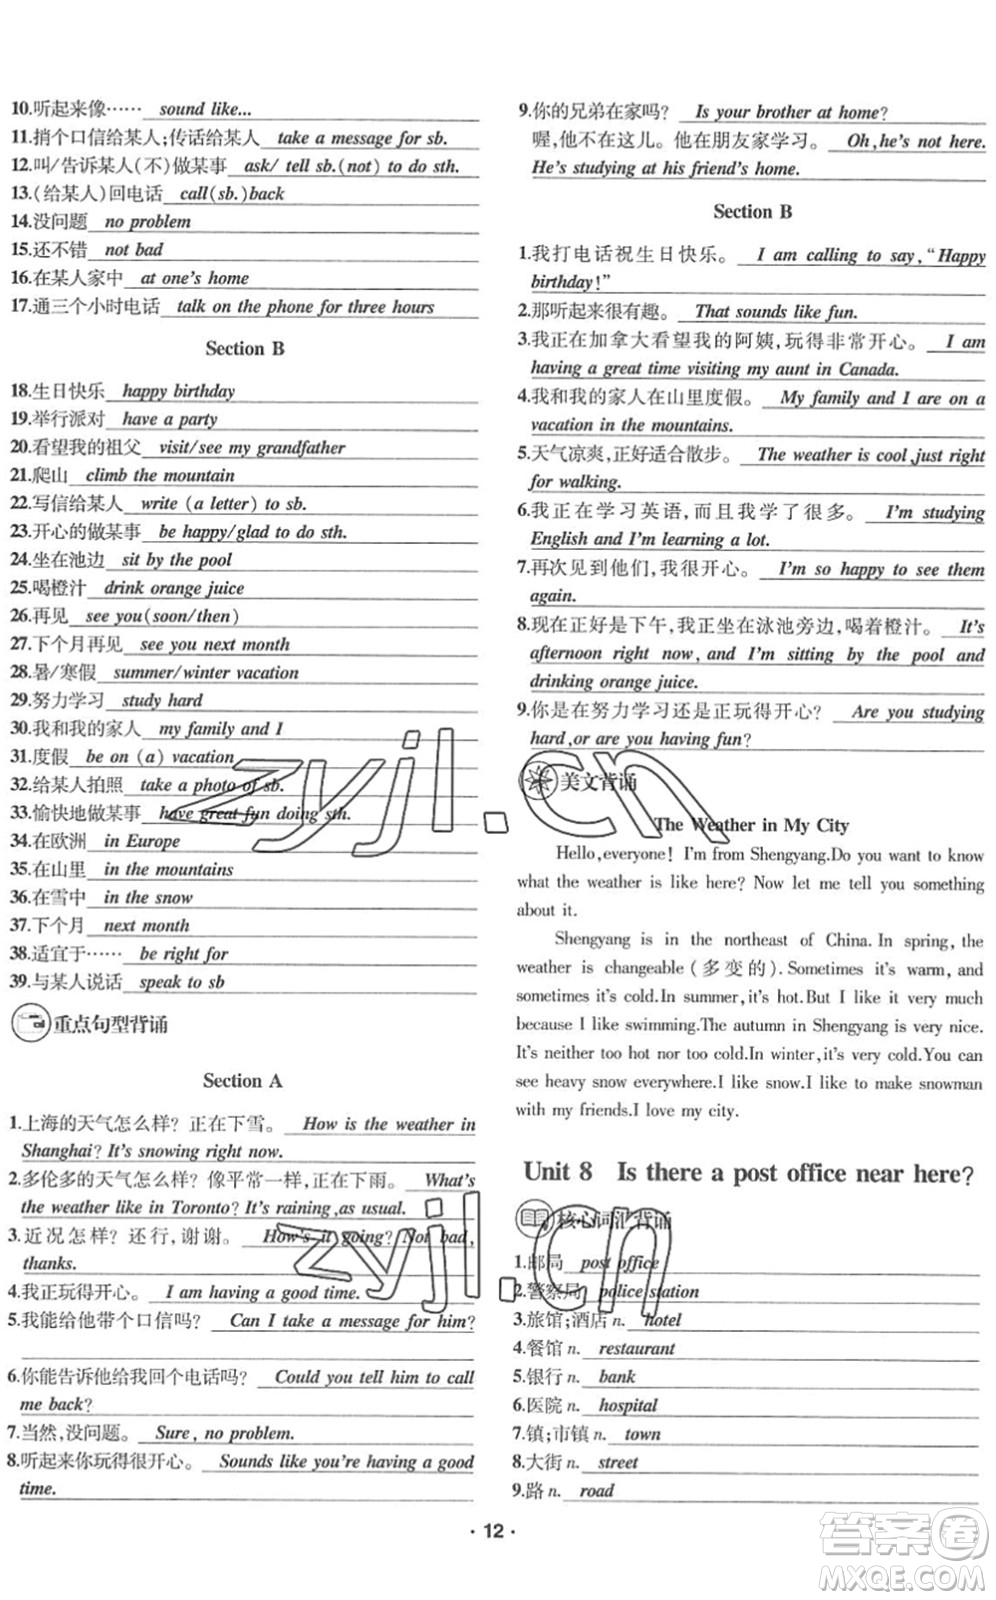 10.听起来像…… sound like...
11.捎个口信给某人;传话给某人 take a message for sb.
12.叫/告诉某人(不)做某事 ask/ tell sb.(not) to do sth.
13.(给某人)回电话 call(sb.)back
14.没问题 no problem
15.还不错 not bad
16.在某人家中 at one's home
17.通三个小时电话 talk on the phone for three hours
Section B
18.生日快乐 happy birthday
19.举行派对 have a party
20.看望我的祖父 visit/see my grandfather
21.爬山 climb the mountain
22.写信给某人 write (a letter) to sb.
23.开心的做某事 be happy/glad to do sth.
24.坐在池边 sit by the pool
25.喝橙汁 drink orange juice
26.再见 see you(soon/then)
27.下个月再见 see you next month
28.暑/寒假 summer/winter vacation
29.努力学习 study hard
30.我和我的家人 my family and I
31.度假 be on (a) vacation
32.给某人拍照 take a photo of sb.
33.愉快地做某事 have great fun doing sth.
34.在欧洲 in Europe
35.在山里 in the mountains
36.在雪中 in the snow
37.下个月 next month
38.适宜于…… be right for
39.与某人说话 speak to sb
重点句型背诵
Section A
1.上海的天气怎么样? 正在下雪。 How is the weather in
Shanghai? It's snowing right now.
2.多伦多的天气怎么样? 像平常一样,正在下雨。 What's
the weather like in Toronto? It's raining,as usual.
3.近况怎样? 还行,谢谢。 How's it going? Not bad,
thanks.
4.我正玩得开心。 I am having a good time.
5.我能给他带个口信吗? Can I take a message for him?
6.你能告诉他给我回个电话吗? Could you tell him to call
me back?
7.当然,没问题。 Sure, no problem.
8.听起来你玩得很开心。 Sounds like you're having a good
time.
9.你的兄弟在家吗? Is your brother at home?
喔,他不在这儿。他在朋友家学习。 Oh,he's not here.
He's studying at his friend's home.
Section B
1.我打电话祝生日快乐。 I am calling to say,"Happy
birthday!"
2.那听起来很有趣。 That sounds like fun.
3.我正在加拿大看望我的阿姨,玩得非常开心。 I am
having a great time visiting my aunt in Canada.
4.我和我的家人在山里度假。 My family and I are on a
vacation in the mountains.
5.天气凉爽,正好适合散步。 The weather is cool,just right
for walking.
6.我正在学习英语,而且我学了很多。 I'm studying
English and I'm learning a lot.
7.再次见到他们,我很开心。 I'm so happy to see them
again.
8.现在正好是下午,我正坐在泳池旁边,喝着橙汁。 It's
afternoon right now, and I'm sitting by the pool and
drinking orange juice.
9.你是在努力学习还是正玩得开心? Are you studying
hard,or are you having fun?
美文背诵
The Weather in My City
Hello,everyone! I'm from Shengyang.Do you want to know
what the weather is like here? Now let me tell you something
about it.
Shengyang is in the northeast of China. In spring, the
weather is changeable (多变的). Sometimes it's warm, and
sometimes it's cold. In summer, it's hot.But I like it very much
because I like swimming.The autumn in Shengyang is very nice.
It's neither too hot nor too cold. In winter, it's very cold.You can
see heavy snow everywhere.I like snow.I like to make snowman
with my friends.I love my city.
Unit 8 Is there a post office near here?
核心词汇背诵
1.邮局 post office
2.警察局 police station
3.旅馆;酒店 n. hotel
4.餐馆 n. restaurant
5.银行 n. bank
6.医院 n. hospital
7.镇;市镇 n. town
8.大街 n. street
9.路 n. road
· 12 ·
zyjl.cn
zyjl.cn
答案圈
MXQE.COM